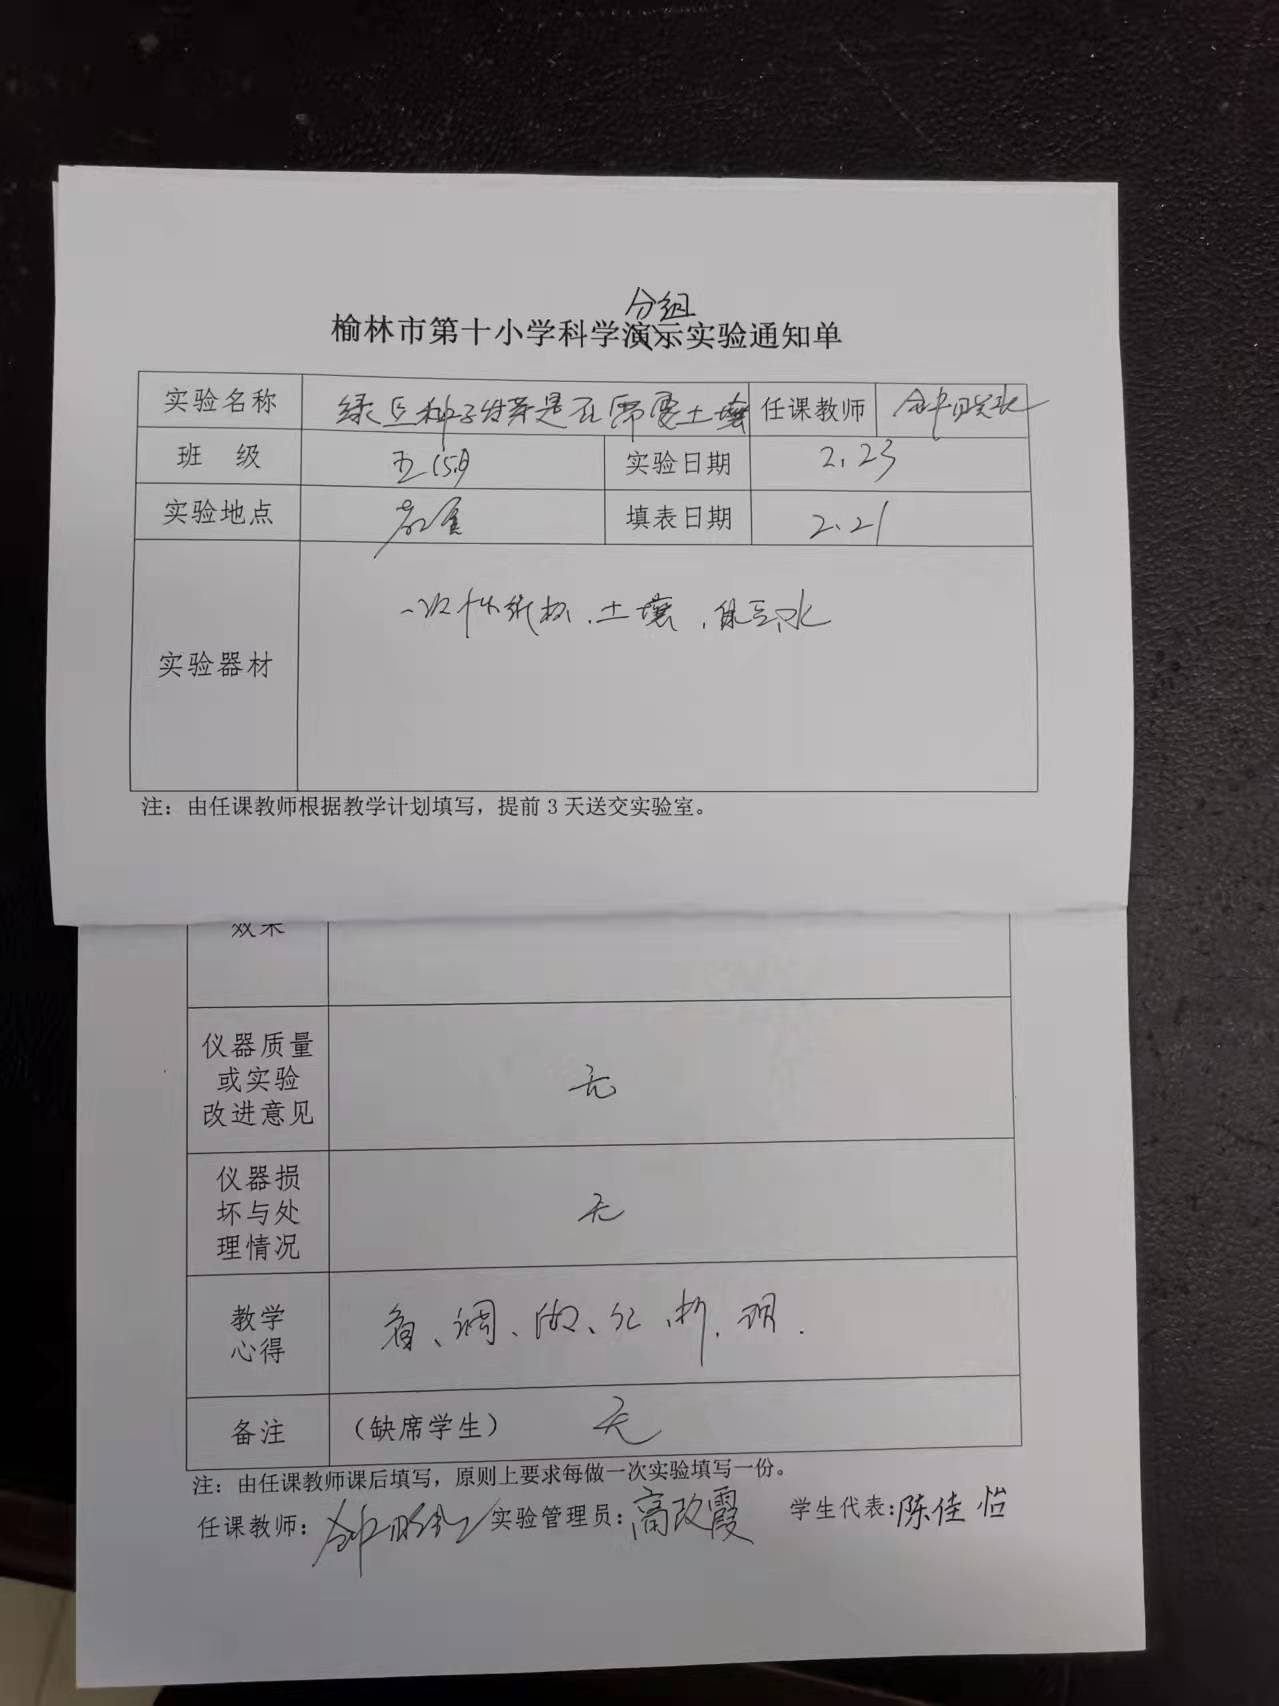 分组
榆林市第十小学科学演示实验通知单
实验名称 绿豆种子发芽是否需要土壤 任课教师
班 级 五 实验日期 2.23
实验地点 教室 填表日期 2.21
实验器材 一次性纸杯、土壤、绿豆、水
注：由任课教师根据教学计划填写，提前 3 天送交实验室。
效果
仪器质量
或实验
改进意见 无
仪器损
坏与处
理情况 无
教学
心得
备注 （缺席学生） 无
注：由任课教师课后填写，原则上要求每做一次实验填写一份。
任课教师： 实验管理员：高改霞 学生代表：陈佳怡